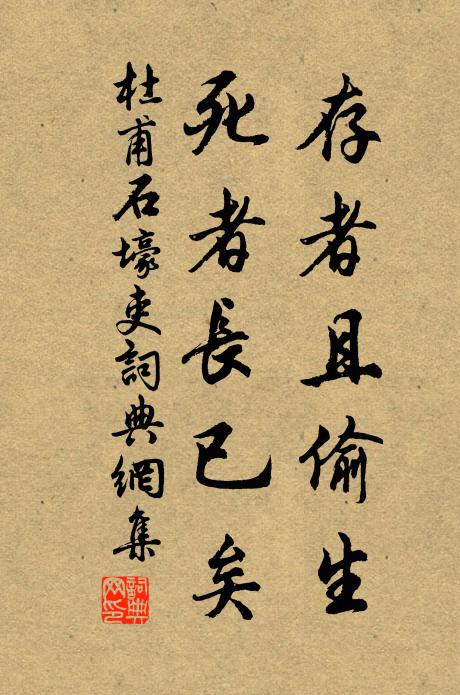 存者且偷生
死者長已矣
杜甫石壕吏詞典網集
詞典
网印